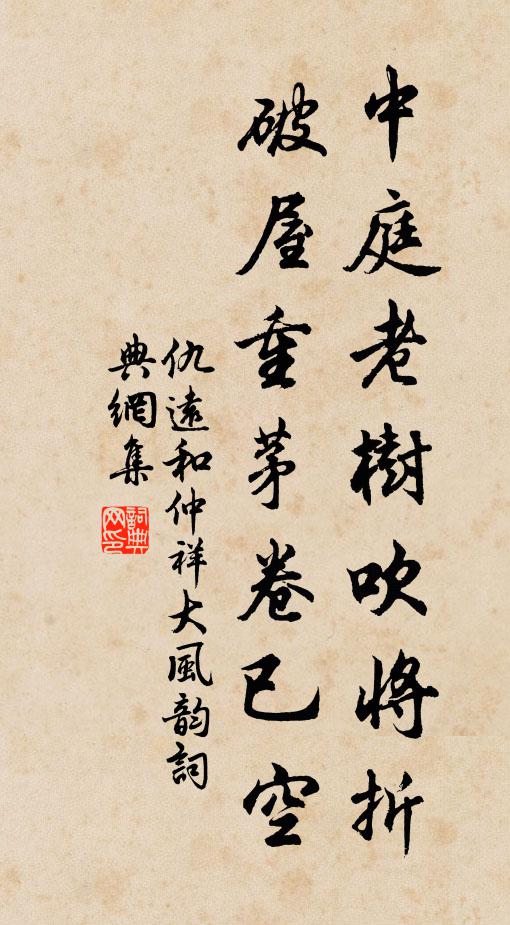 中庭老樹吹將折
破屋重茅卷已空
仇遠和仲祥大風韵詞
典網集
詞典
网印